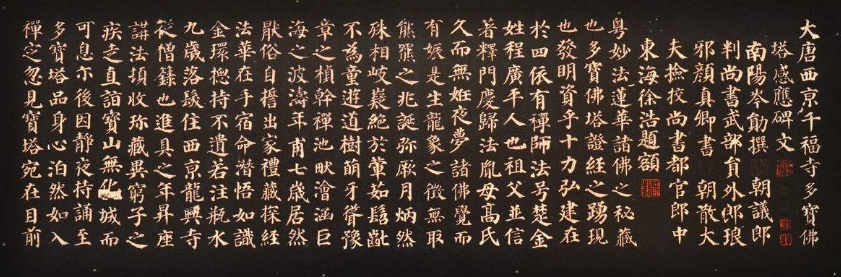 大唐西京千福寺多寶佛
塔感應碑文
南陽岑勛撰 朝議郎
判尚書武部員外郎琅
邪顏真卿書 朝散大
夫撿挍尚書都官郎中
東海徐浩題額
粵妙法蓮華諸佛之秘藏
也多寶佛塔證經之踴現
也發明資乎十力弘建在
於四依有禪師法号楚金
姓程廣平人也祖父並信
著釋門慶歸法胤母高氏
久而無妊夜夢諸佛覺而
有娠是生龍象之徵無取
熊羆之兆誕弥厥月炳然
殊相岐嶷絕於葷茹髫齔
不為童遊道樹萌牙聳豫
章之楨幹禪池畎澮涵巨
海之波濤年甫七歲居然
厭俗自誓出家禮藏探經
法華在手宿命潛悟如識
金環惣持不遺若注瓶水
九歲落髮住西京龍興寺
從僧籙也進具之年昇座
講法頓收珍藏異窮子之
疾走直詣寶山無化城而
可息尒後因靜夜持誦至
多寶塔品身心泊然如入
禪定忽見寶塔宛在目前